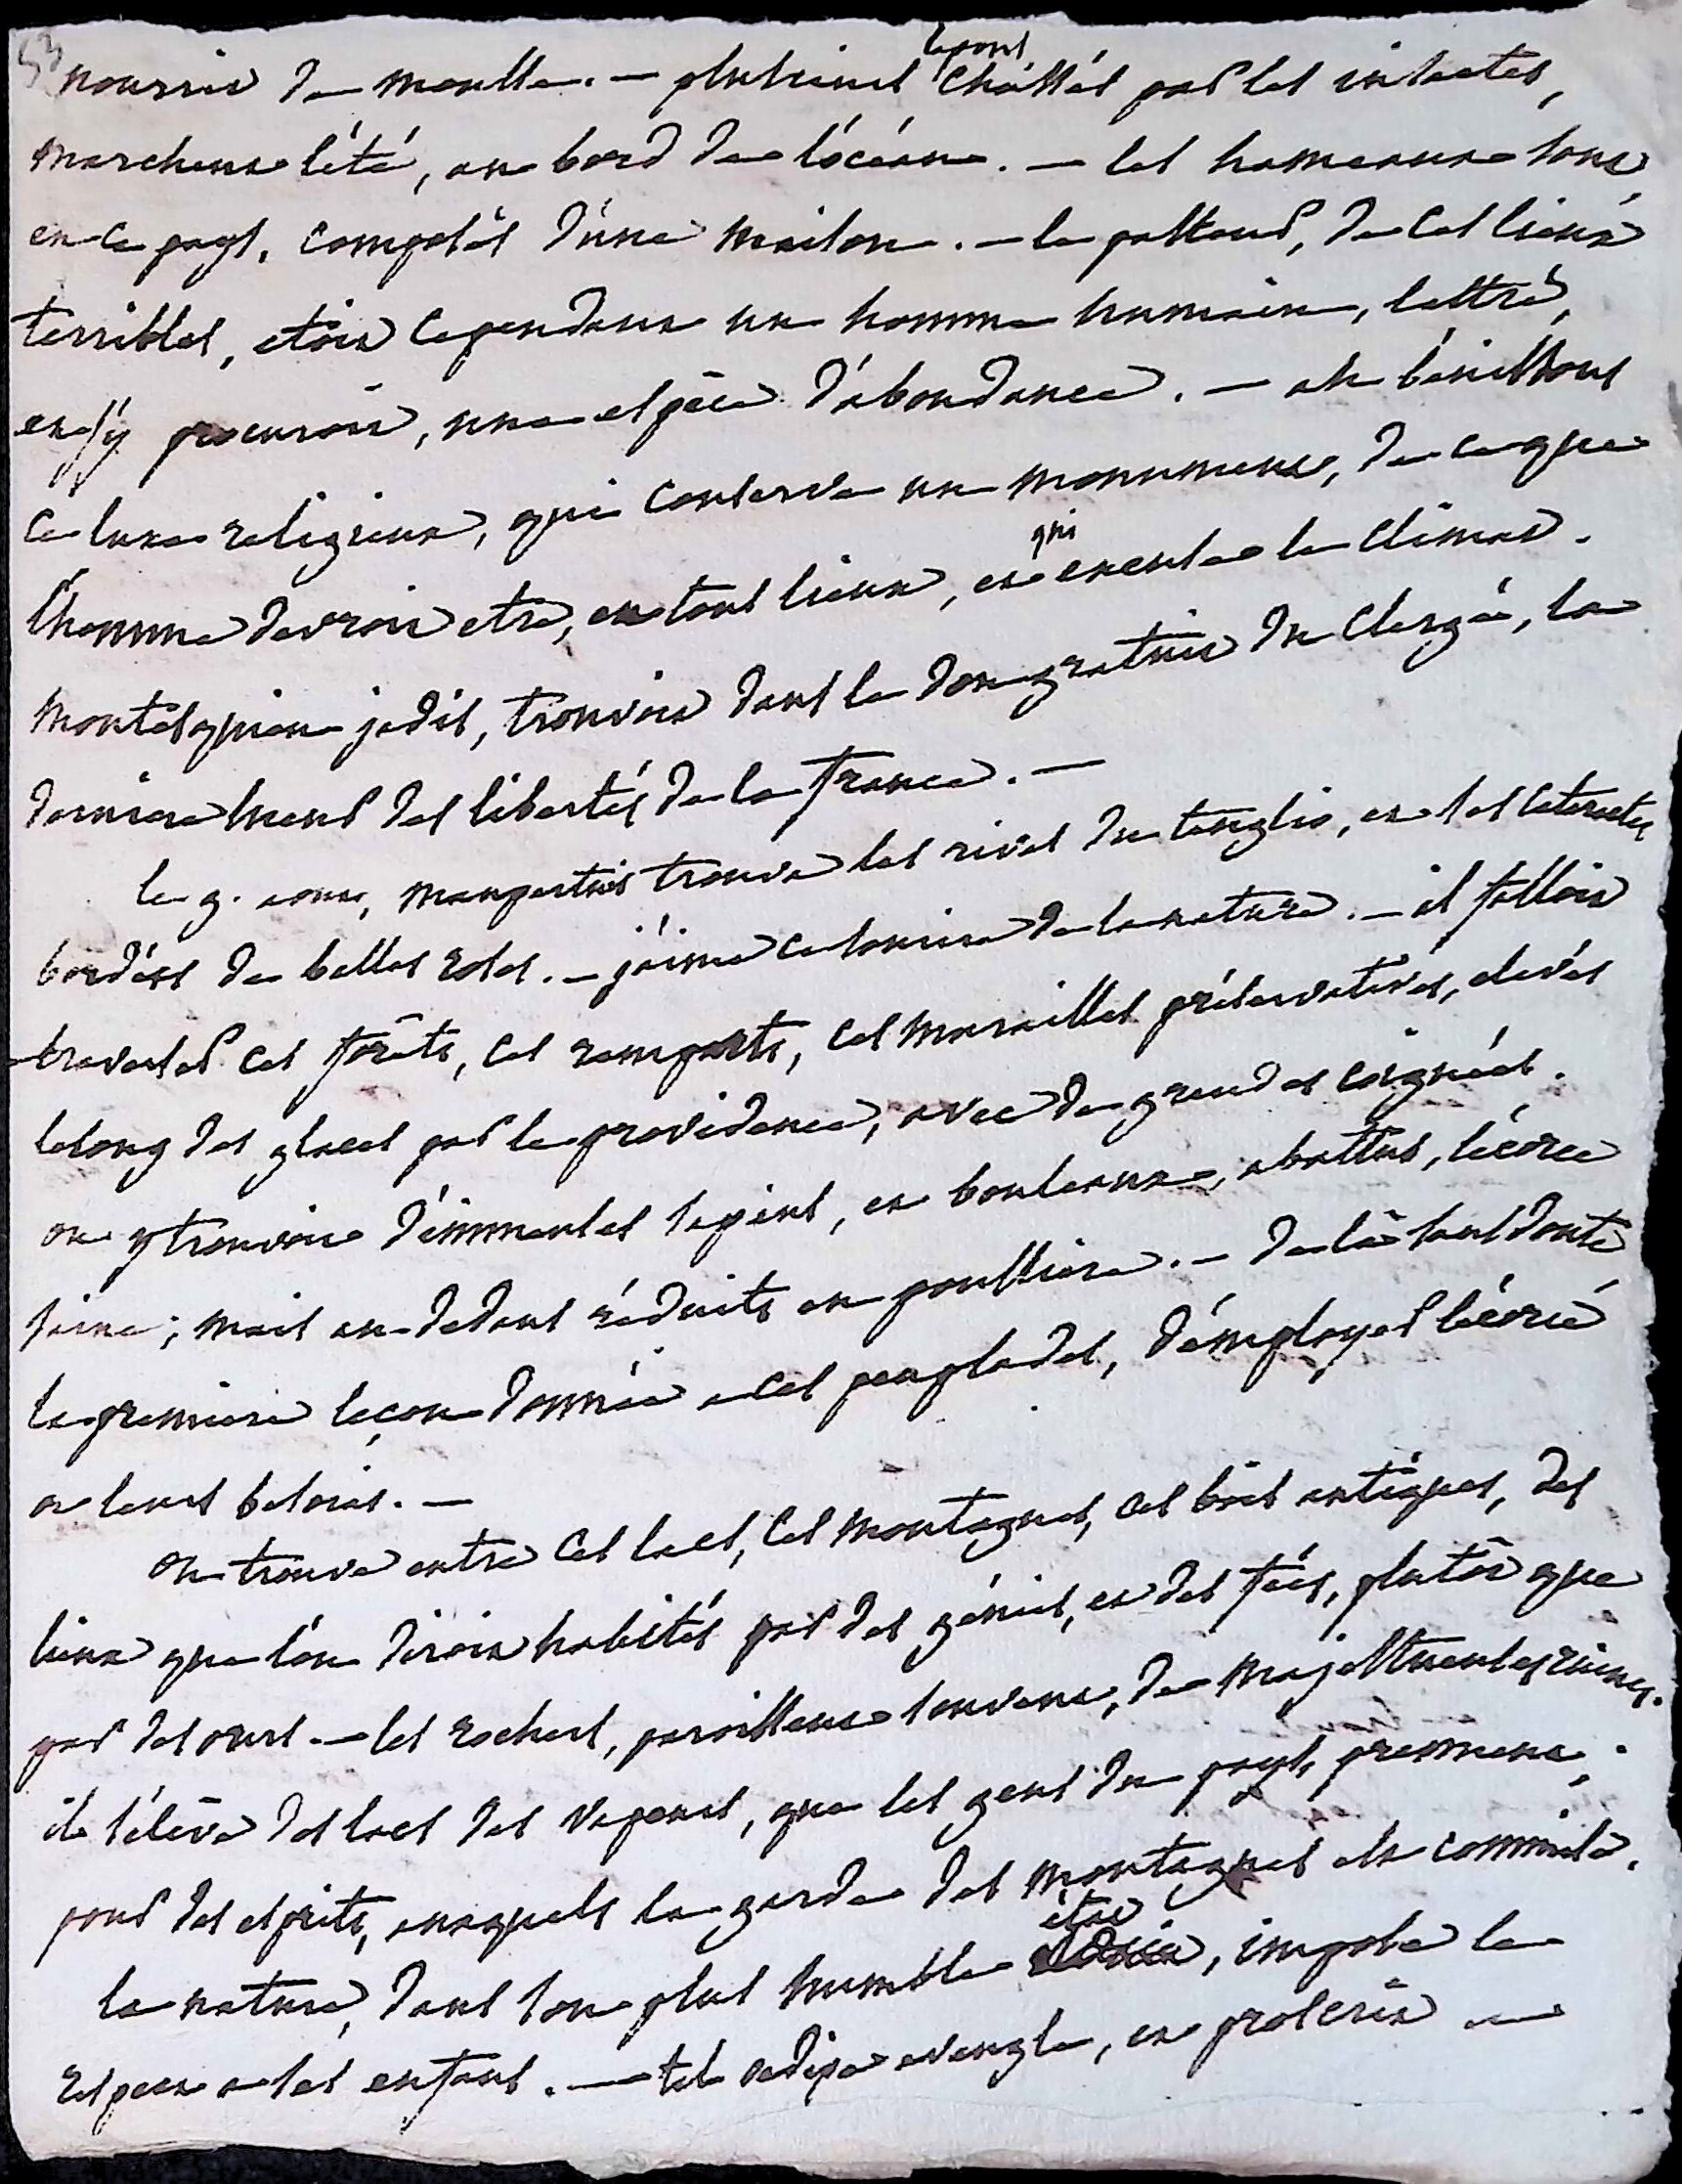 53
nourris de mousse. — plusieurs lapons chassés par les insectes,
marchent l'été, au bord de l'océan. — les hameaux sont
en ce pays, composés d'une maison. — le pasteur, de ces lieux
terribles, étoit cependant un homme humain, lettré,
et s'y procuroit, une espèce d'abondance. — ah bénissons
ce luxe religieux, qui conserve un monument, de ce que
l'homme devroit etre, en tous lieux, et qui excuse le climat.
montesquieu jadis, trouvoit dans le don gratuit du clergé, la
derniere lueur des libertés de la france. —
le g. aout, maupertuis trouva les rives du tenglio, et ses cateractes
bordées de belles roses. — j'aime ce sourire de la nature. — il falloit
traverser ces forêts, ces remparts, ces murailles préservatives, elevés
le long des glaces par la providence, avec de grandes coignées.
on y trouvoit d'immenses sapins, et bouleaux, abattus, l'écorce
saine; mais au dedans réduits en poussiere. — de là sans doute
la premiere leçon donnée a ces peuplades, d'employer l'écorce
a leurs besoins. —
on trouve entre ces lacs, ces montagnes, ces bois antiques, des
lieux que l'on diroit habités par des génies, et des fées, plutôt que
par des ours. — les rochers, paroissent souvent, de majestueuses ruines.
il s'élève des lacs des vapeurs, que les gens du pays, prennent,
pour des esprits, auxquels la garde des montagnes est commise.
la nature, dans son plus humble état, impose le
respect a ses enfans. — tel oedipe aveugle, et proscrit